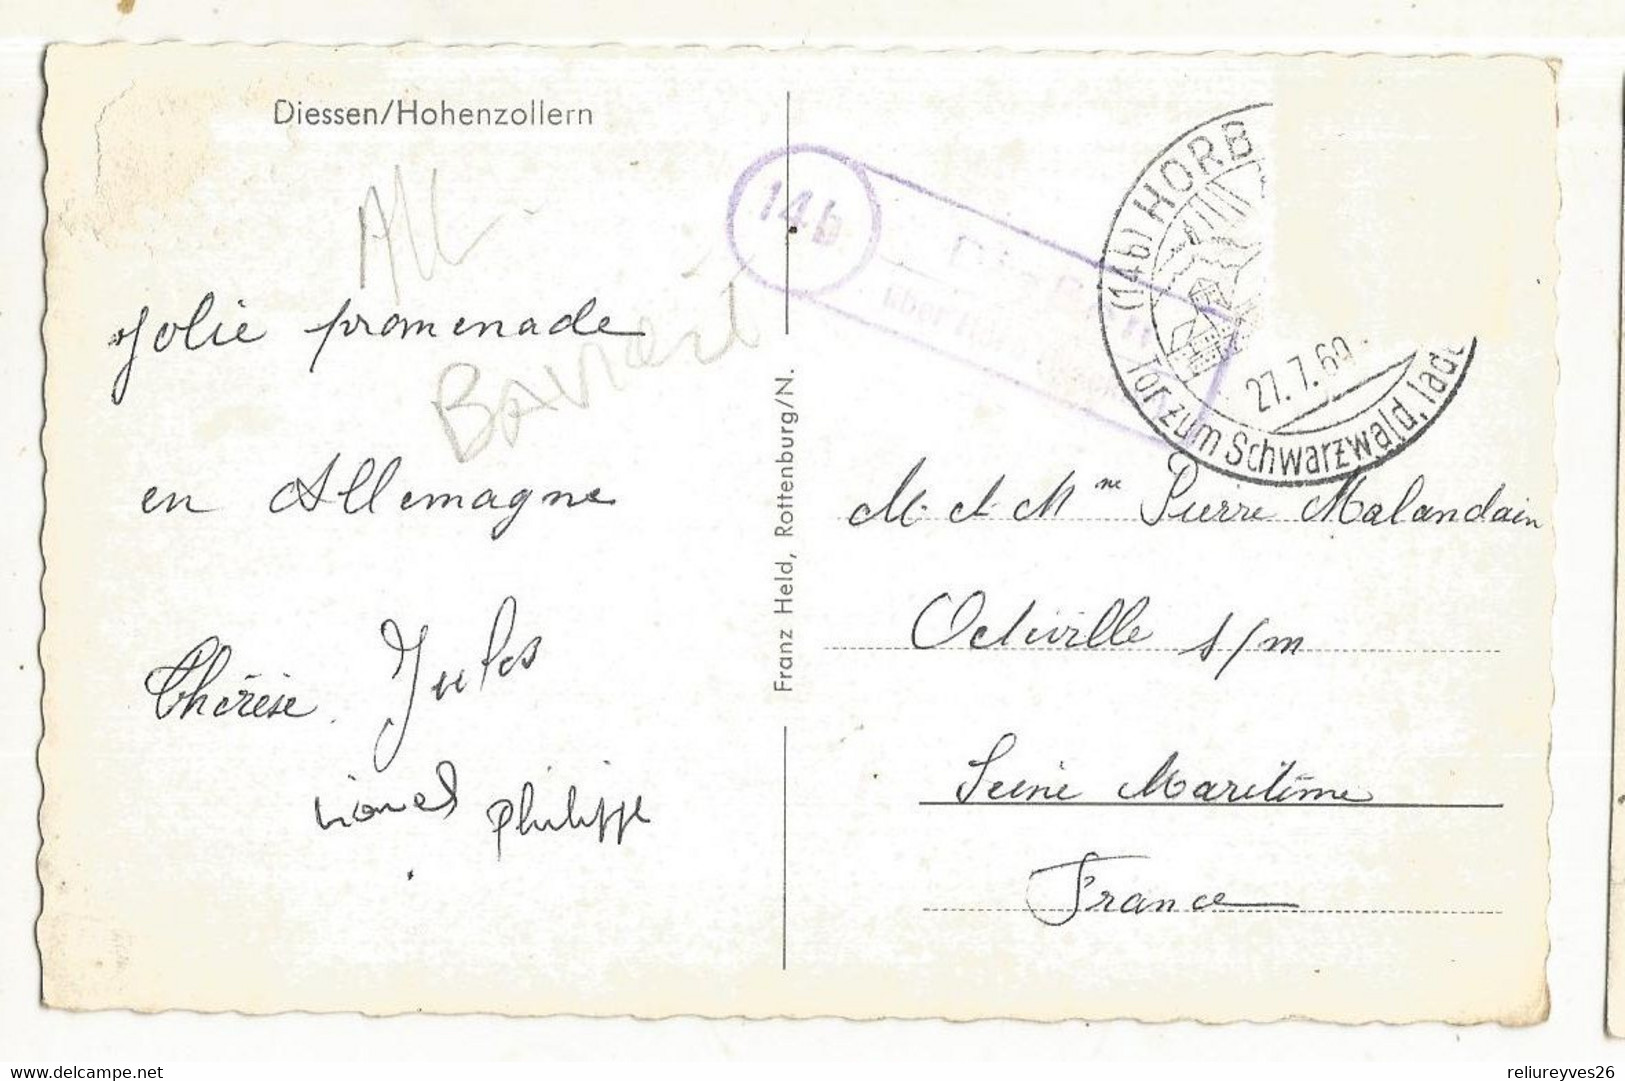 Diessen/Hohenzollern
All
Bavière
Jolie promenade
en Allemagne
Thérèse. Jules
Lionel Philippe
Franz Held, Rottenburg/N.
14b
über Horb
(14b) HORB
27.7.60
Tor zum Schwarzwald, lade
M. et Mme Pierre Malandain
Octeville s/m
Seine Maritime
France
reliureyves26